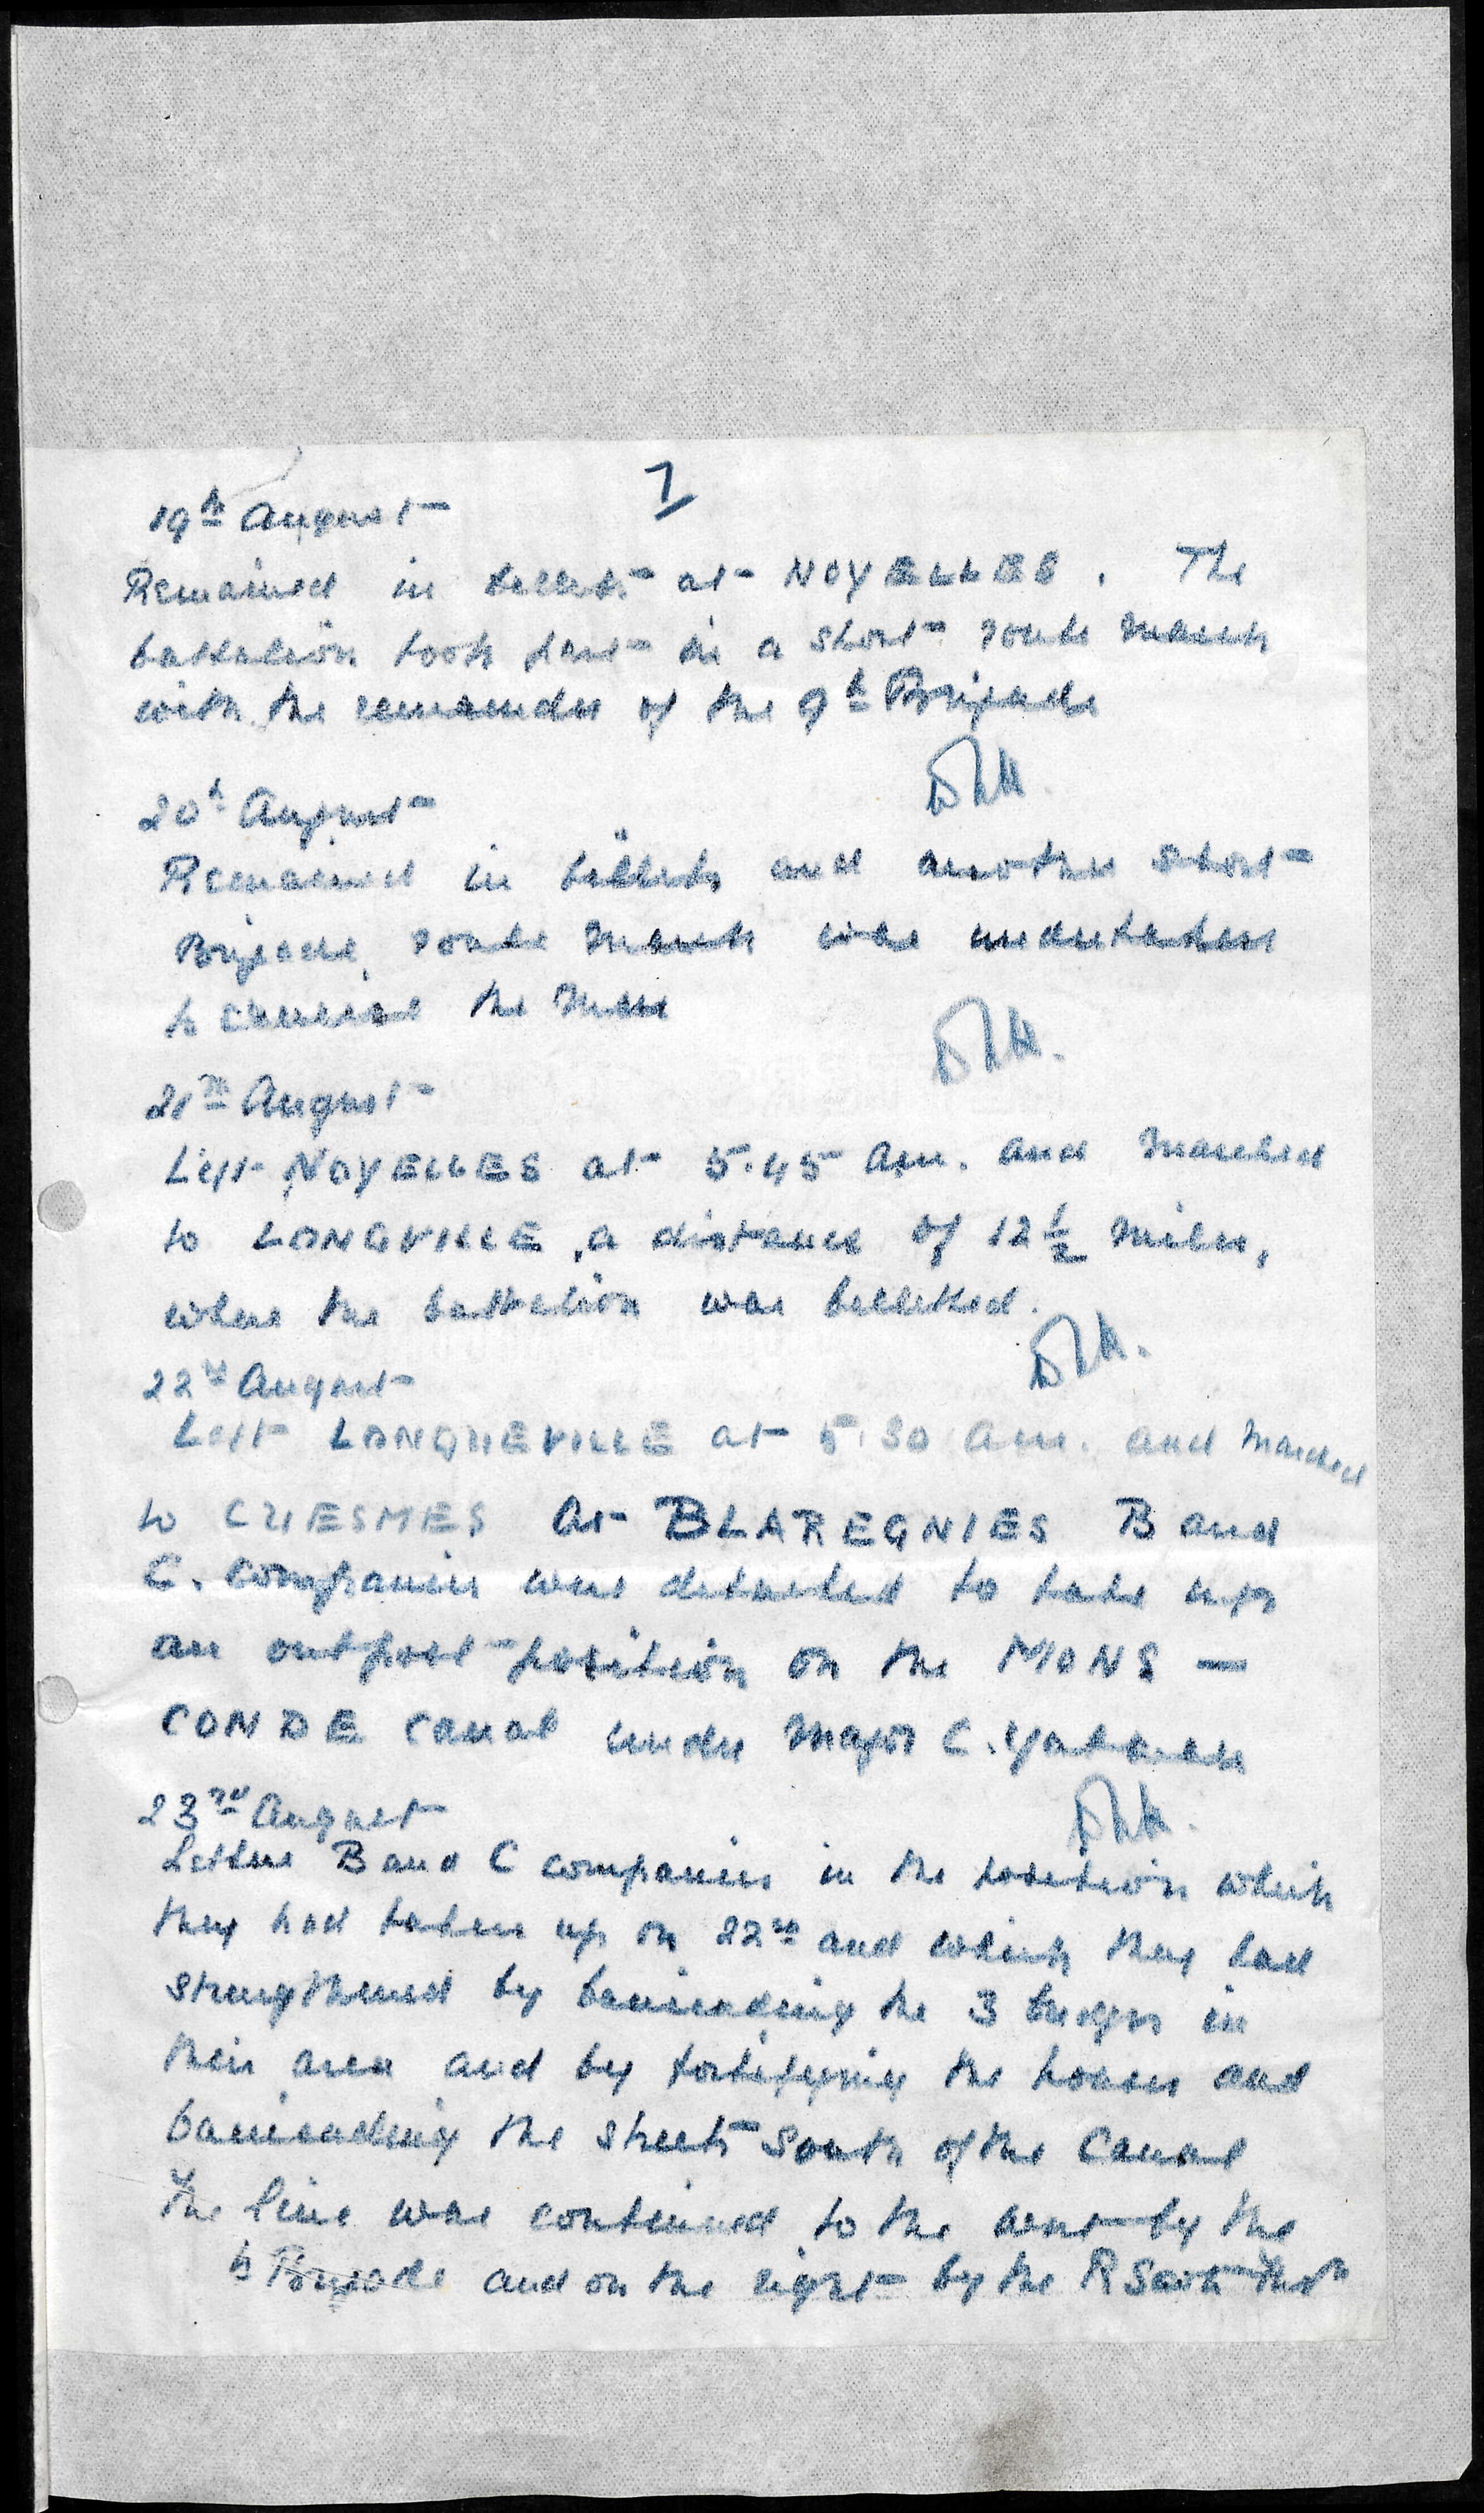 7
19th August
Remained in billets at NOYELLES. The
battalion took part in a short route march
with the remainder of the 9th Brigade
20th August
Remained in billets and another short
Brigade route march was undertaken
to exercise the men
21st August
Left NOYELLES at 5.45 am. and marched
to LONGVILLE, a distance of 12 1/2 miles,
where the battalion was billeted.
22nd August
Left LONGUEVILLE at 5.30 am. and marched
to CUESMES At BLAREGNIES B and
C. Companies were detached to take up
an outpost position on the MONS —
CONDE canal under Major C. Yatman
23rd August
B and C companies in the position which
they had taken up on 22nd and which they had
strengthened by barricading the 3 bridges in
their area and by fortifying the houses and
barricading the streets South of the Canal
The line was continued to the west by the
Brigade and on the right by the R Scots